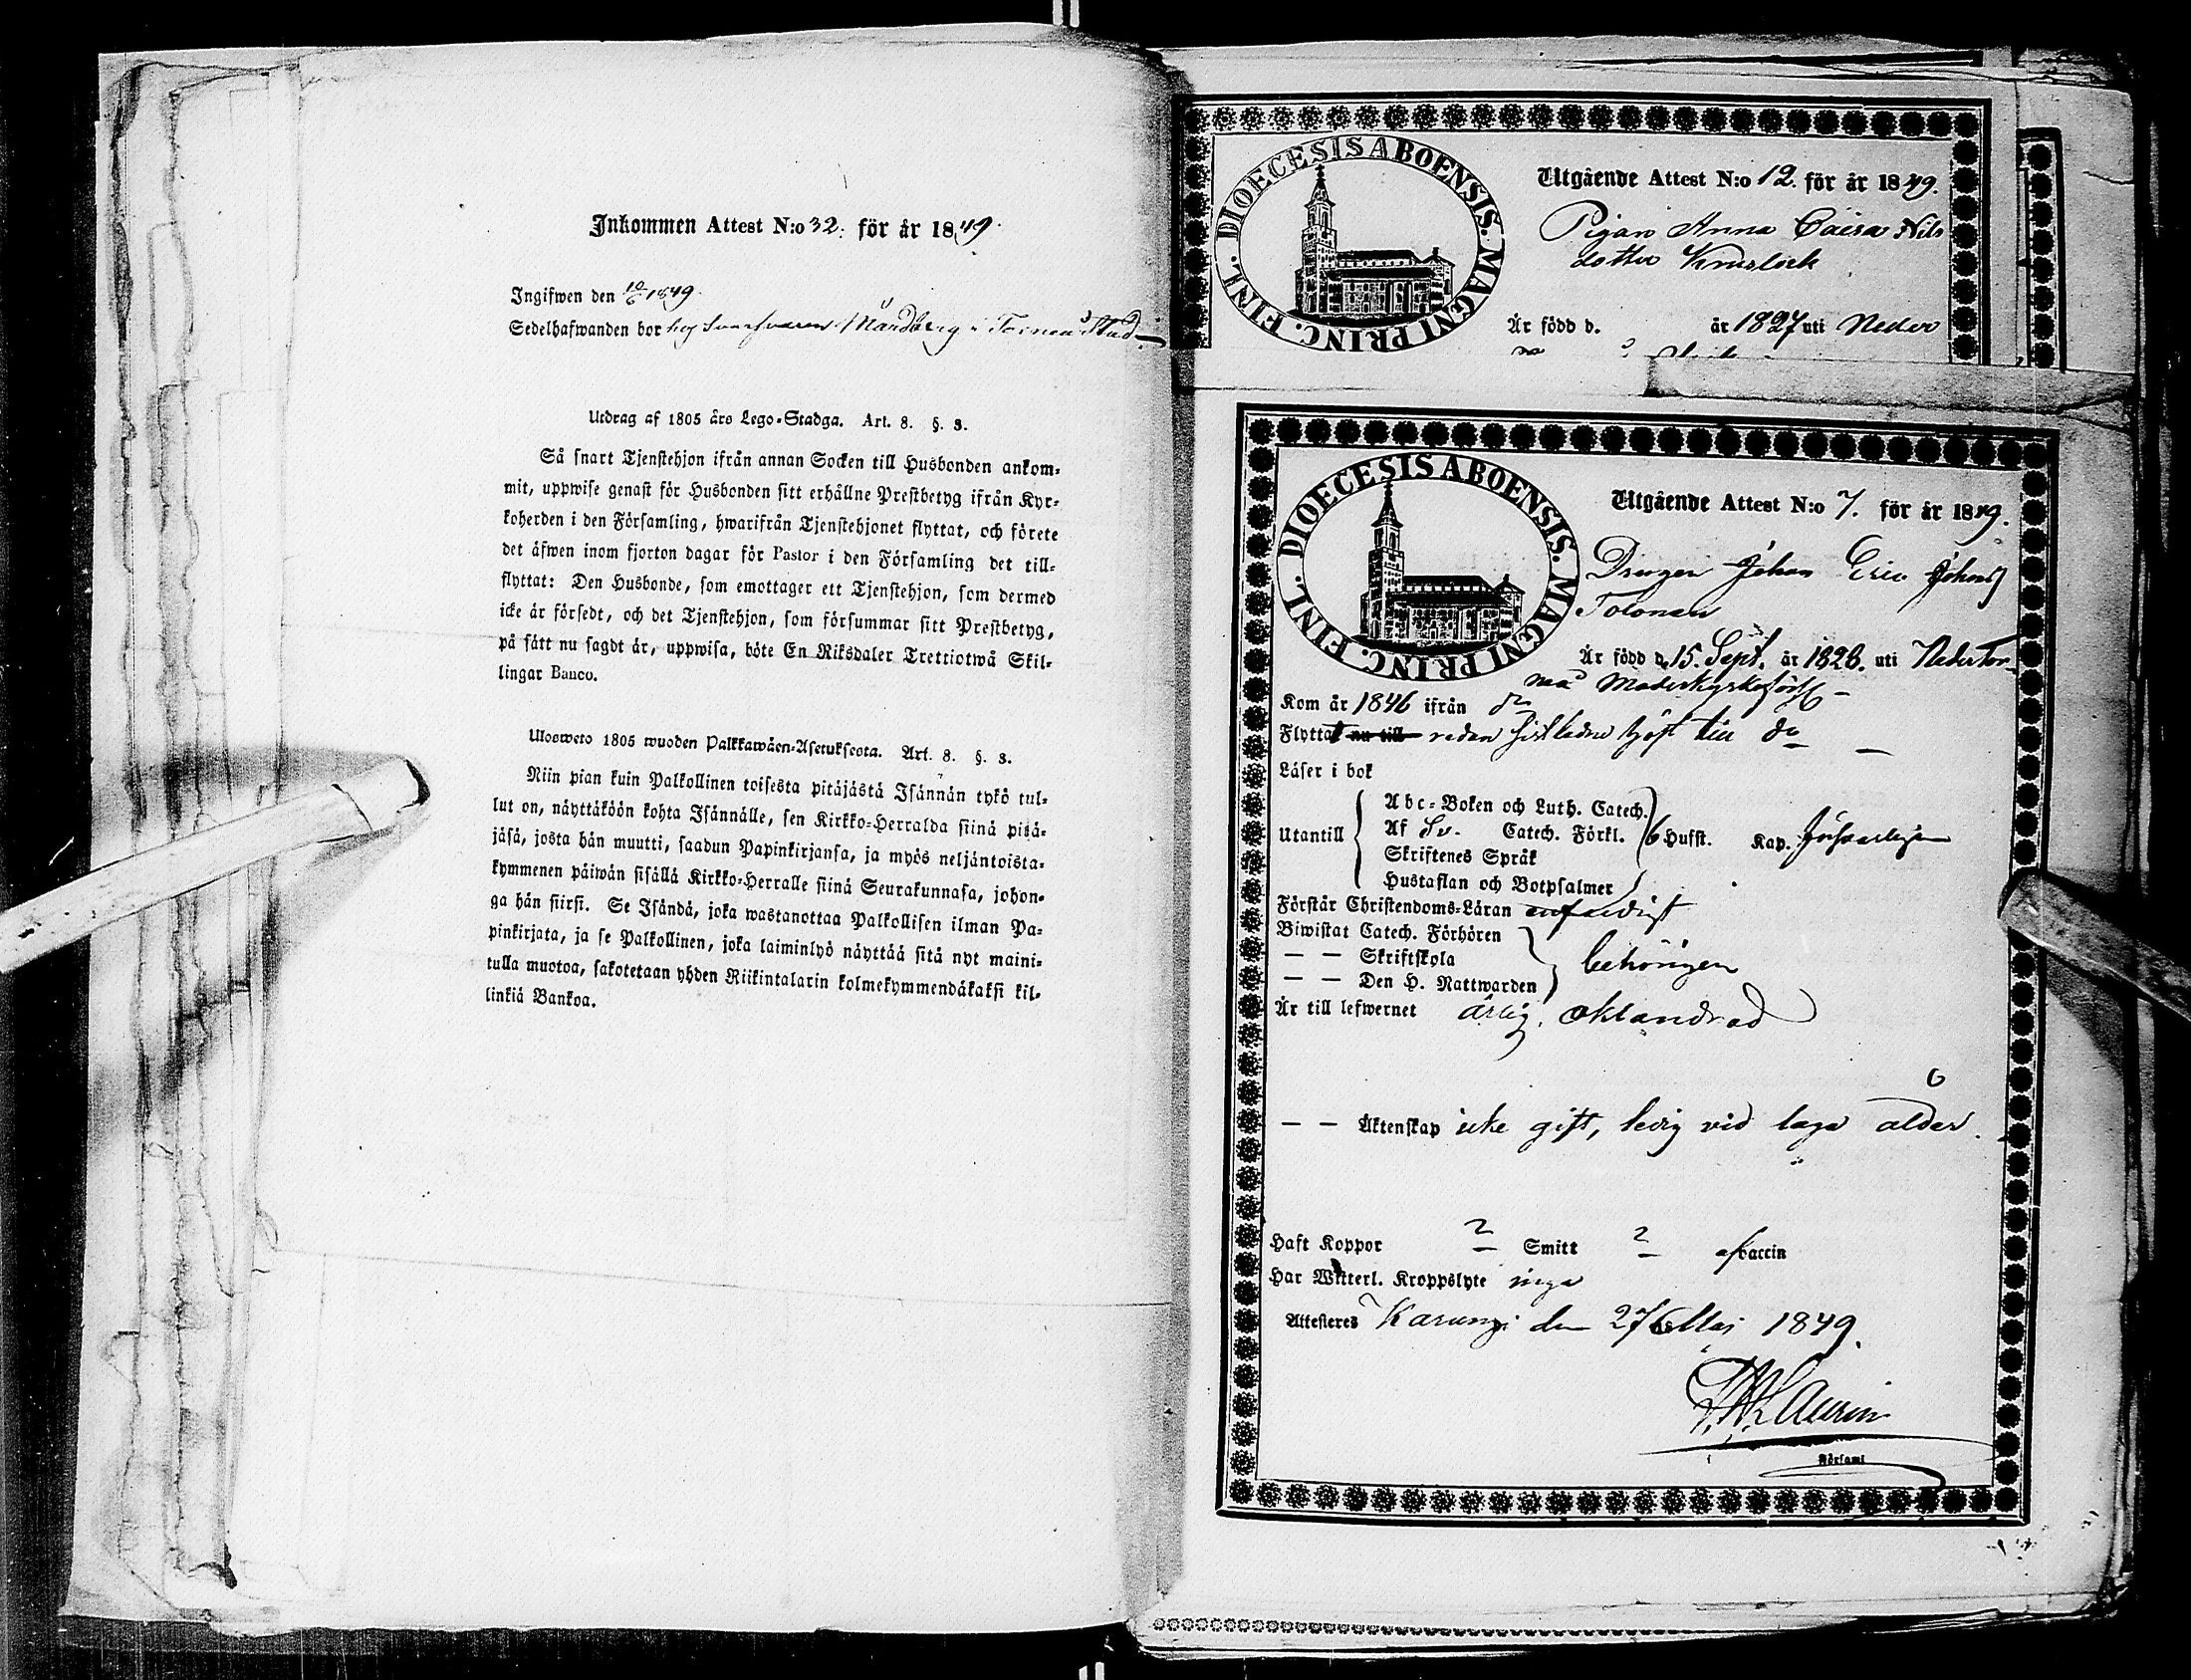 Inkommen Attest N:o 32. för år 1849.
Ingifwen den 10/6 1849.
Sedelhafwanden bor hos Mårdberg i Torneå Stad
Utdrag af 1805 års Lego-Stadga. Art. 8. §. 3.
Så snart Tjenstehjon ifrån annan Socken till Husbonden ankom-
mit, uppwise genast för Husbonden sitt erhållne Prestbetyg ifrån Kyr-
koherden i den Församling, hwarifrån Tjenstehjonet flyttat, och förete
det äfwen inom fjorton dagar för Pastor i den Församling det till-
flyttat: Den Husbonde, som emottager ett Tjenstehjon, som dermed
icke är försedt, och det Tjenstehjon, som försummar sitt Prestbetyg,
på sätt nu sagdt är, uppwisa, böte En Riksdaler Trettiotwå Skil-
lingar Banco.
Ulosweto 1805 wuoden Palkkawäen-Asetuksesta. Art. 8. §. 3.
Niin pian kuin Palkollinen toisesta pitäjästä Isännän tykö tul-
lut on, näyttäköön kohta Isännälle, sen Kirkko-Herralda siinä pitä-
jäsä, josta hän muutti, saadun Papinkirjansa, ja myös neljäntoista-
kymmenen päiwän sisällä Kirkko-Herralle siinä Seurakunnasa, johon-
ga hän siirsi. Se Isändä, joka wastanottaa Palkollisen ilman Pa-
pinkirjata, ja se Palkollinen, joka laiminlyö näyttää sitä nyt maini-
tulla muotoa, sakotetaan yhden Riikintalarin kolmekymmendäkaksi kil-
linkiä Bankoa.
DIOECESIS ABOENSIS. MAGNI PRINC. FINL.
Utgående Attest N:o 12. för år 1849.
Pigan Anna Caisa Nils
dotter
Är född d. år 1827 uti Neder
DIOECESIS ABOENSIS. MAGNI PRINC. FINL.
Utgående Attest N:o 7. för år 1849.
Drängen Johan Eric Johans
Tolonen
Är född d. 15. Sept. år 1828. uti NederTor-
neå Moderkyrkoförs
Kom år 1846 ifrån do
Flyttat nu till redan sistledne höst till do
Läser i bok
Utantill
Abc-Boken och Luth. Catech.
Af Sv. Catech. Förkl. 6 Hufst. Kap. försvarligen
Skriftenes Språk
Hustaflan och Botpsalmer
Förstår Christendoms-Läran enfaldigt
Biwistat Catech. Förhören
— — Skriftskola behörigen
— — Den H. Nattwarden
Är till lefwernet ärlig, oklandrad
— — Äktenskap icke gift, ledig vid laga ålder.
Haft Koppor ? Smitt ? af vaccin
Har Witterl. Kroppslyte inga
Attesteras Karungi den 27 Maj 1849.
Laurin
Församl